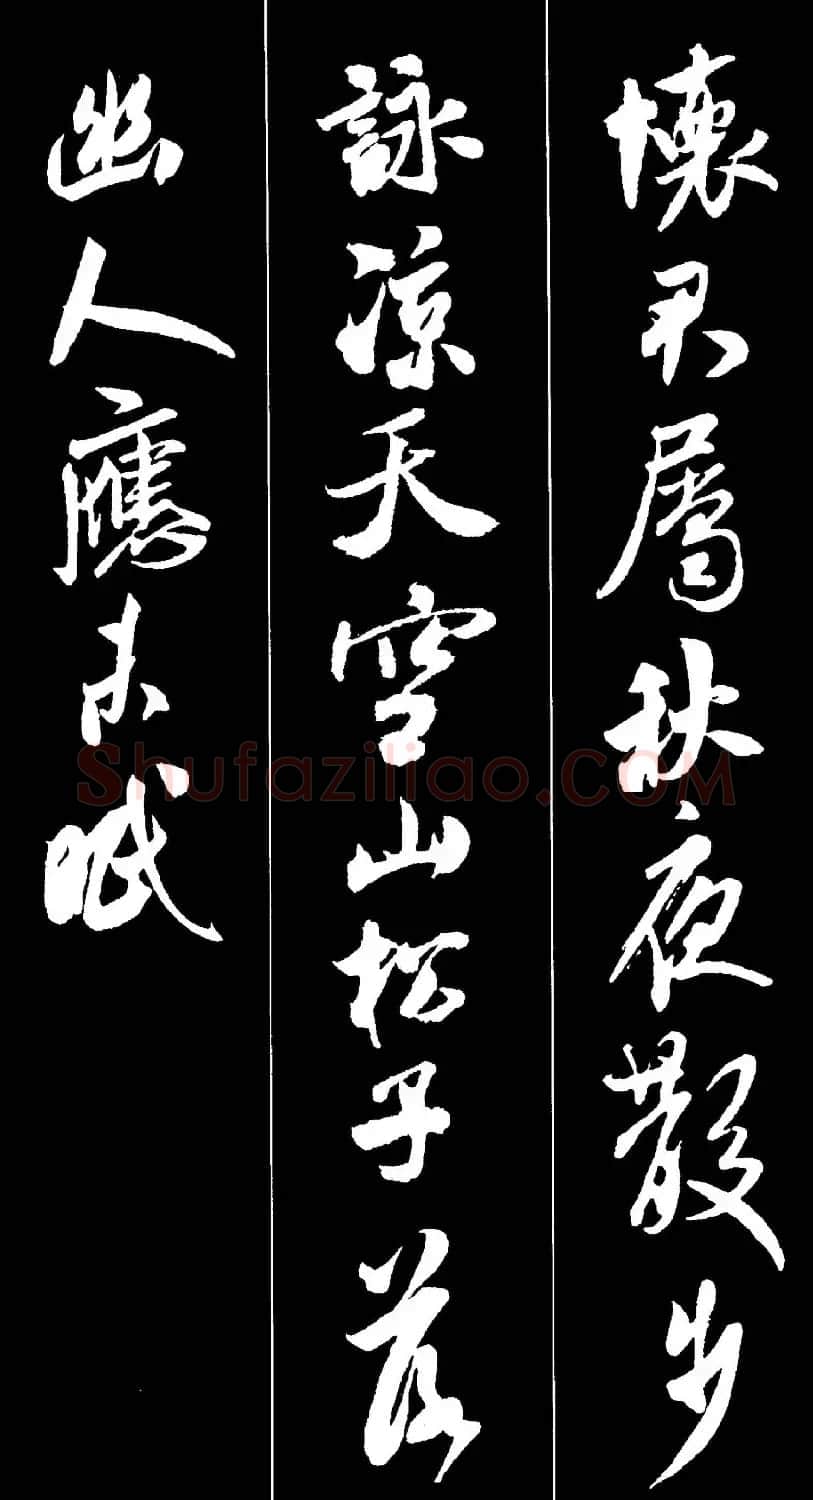 懷君屬秋夜散步
詠涼天空山松子落
幽人應未眠
Shufaziliao.COM